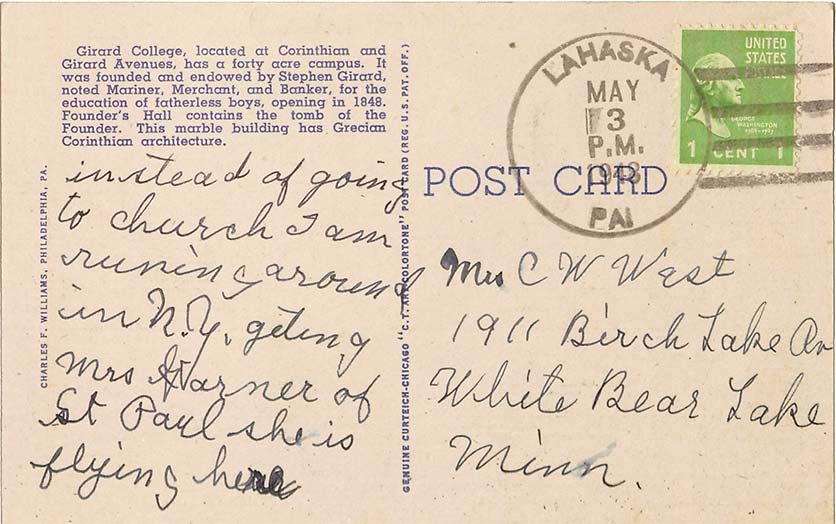 Girard College, located at Corinthian and
Girard Avenues, has a forty acre campus. It
was founded and endowed by Stephen Girard,
noted Mariner, Merchant, and Banker, for the
education of fatherless boys, opening in 1848.
Founder's Hall contains the tomb of the
Founder. This marble building has Grecian
Corinthian architecture.
instead of going
to church I am
runing around
in N.Y. geting
Mrs Garner of
St Paul she is
flying here
CHARLES F. WILLIAMS, PHILADELPHIA, PA.
GENUINE CURTEICH-CHICAGO "C.T. ART-COLORTONE" POST CARD (REG. U.S. PAT. OFF.)
POST CARD
LAHASKA
MAY
3
P.M.
1943
PA
UNITED
STATES
POSTAGE
GEORGE
WASHINGTON
1 CENT 1
Mrs C W West
1911 Birch Lake Av
White Bear Lake
Minn.